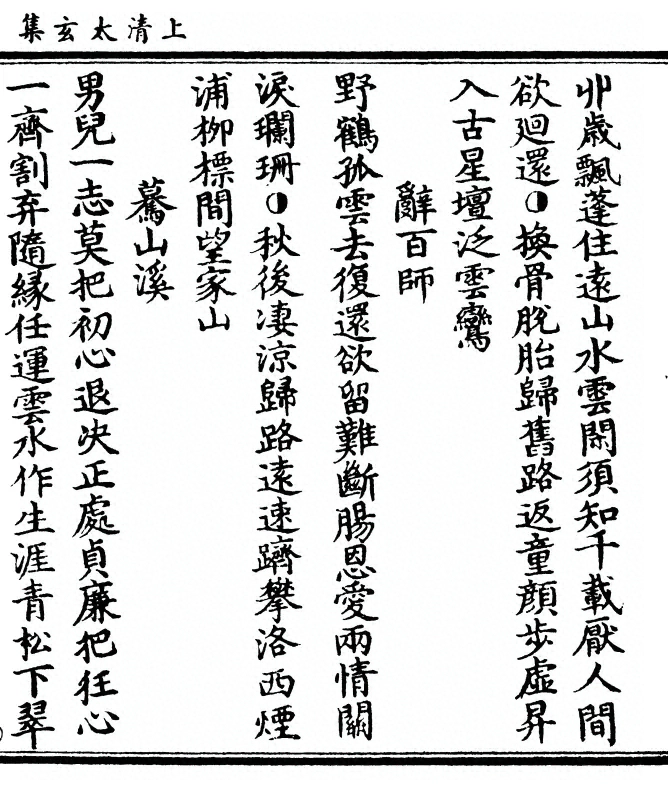 上清太玄集
丱歲飄蓬住遠山水雲閑須知千載厭人間
欲廻還◐換骨脫胎歸舊路返童顏步虛昇
入古星壇泛雲鸞
辭百師
野鶴孤雲去復還欲留難斷腸恩愛兩情關
淚斕珊◐秋後凄涼歸路遠速躋攀洛西煙
浦柳標間望家山
驀山溪
男兒一志莫把初心退决正處貞廉把狂心
一齊割弃隨緣任運雲水作生涯青松下翠